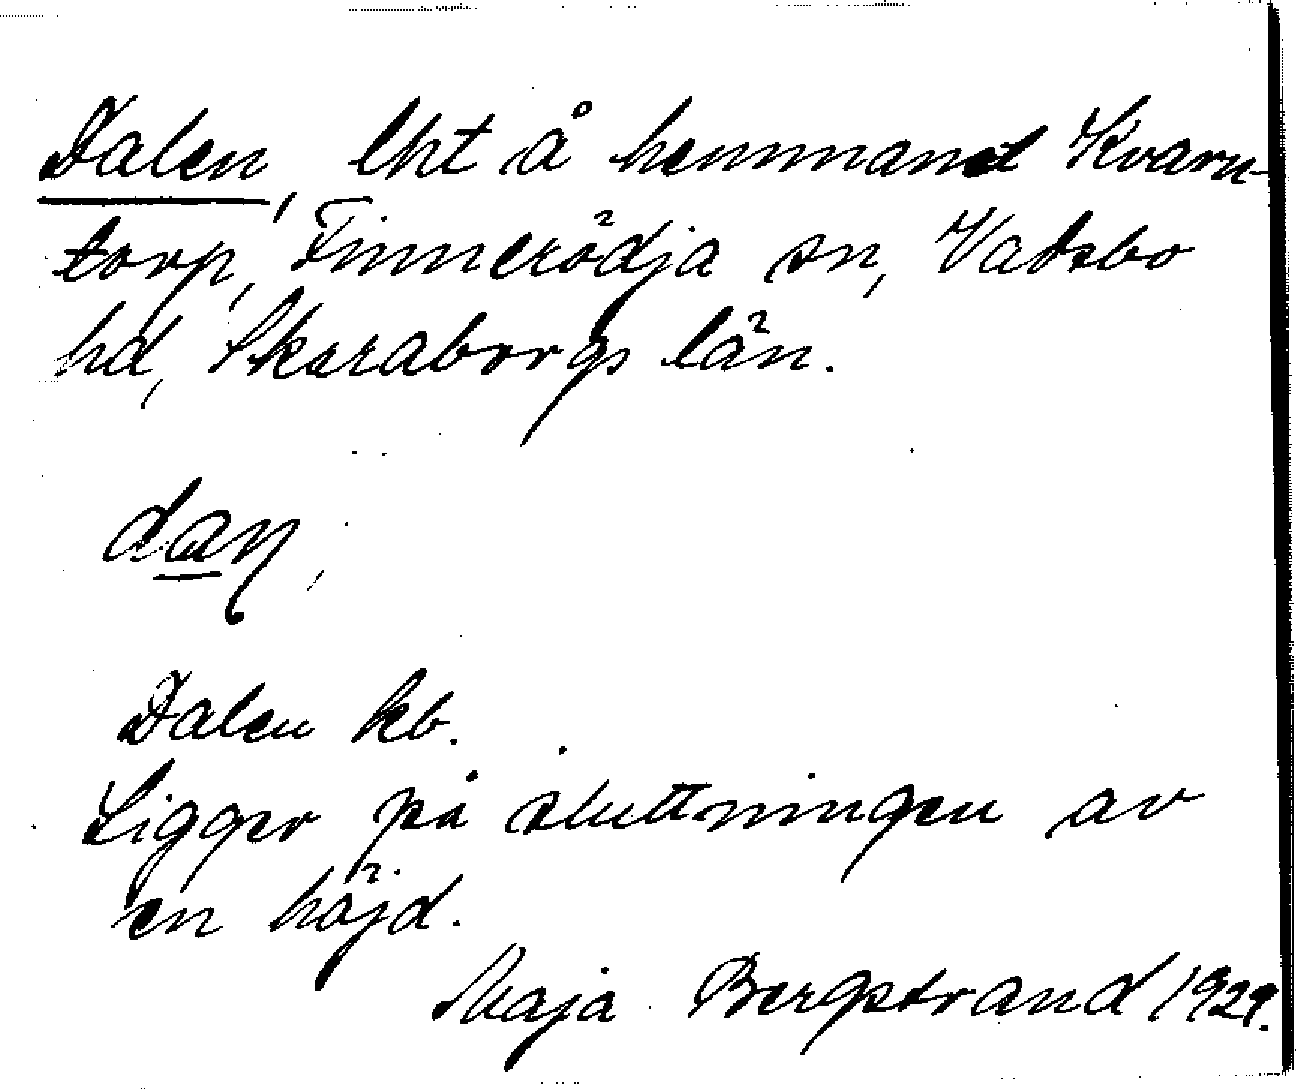 Dalen, lht å hemmanet Kvarn-
torp, Finnerödja sn, Vadsbo
hd, Skaraborgs län.
daṉ,
Dalen kb.
Ligger på sluttningen av
en höjd.
Maja Bergstrand 1929.